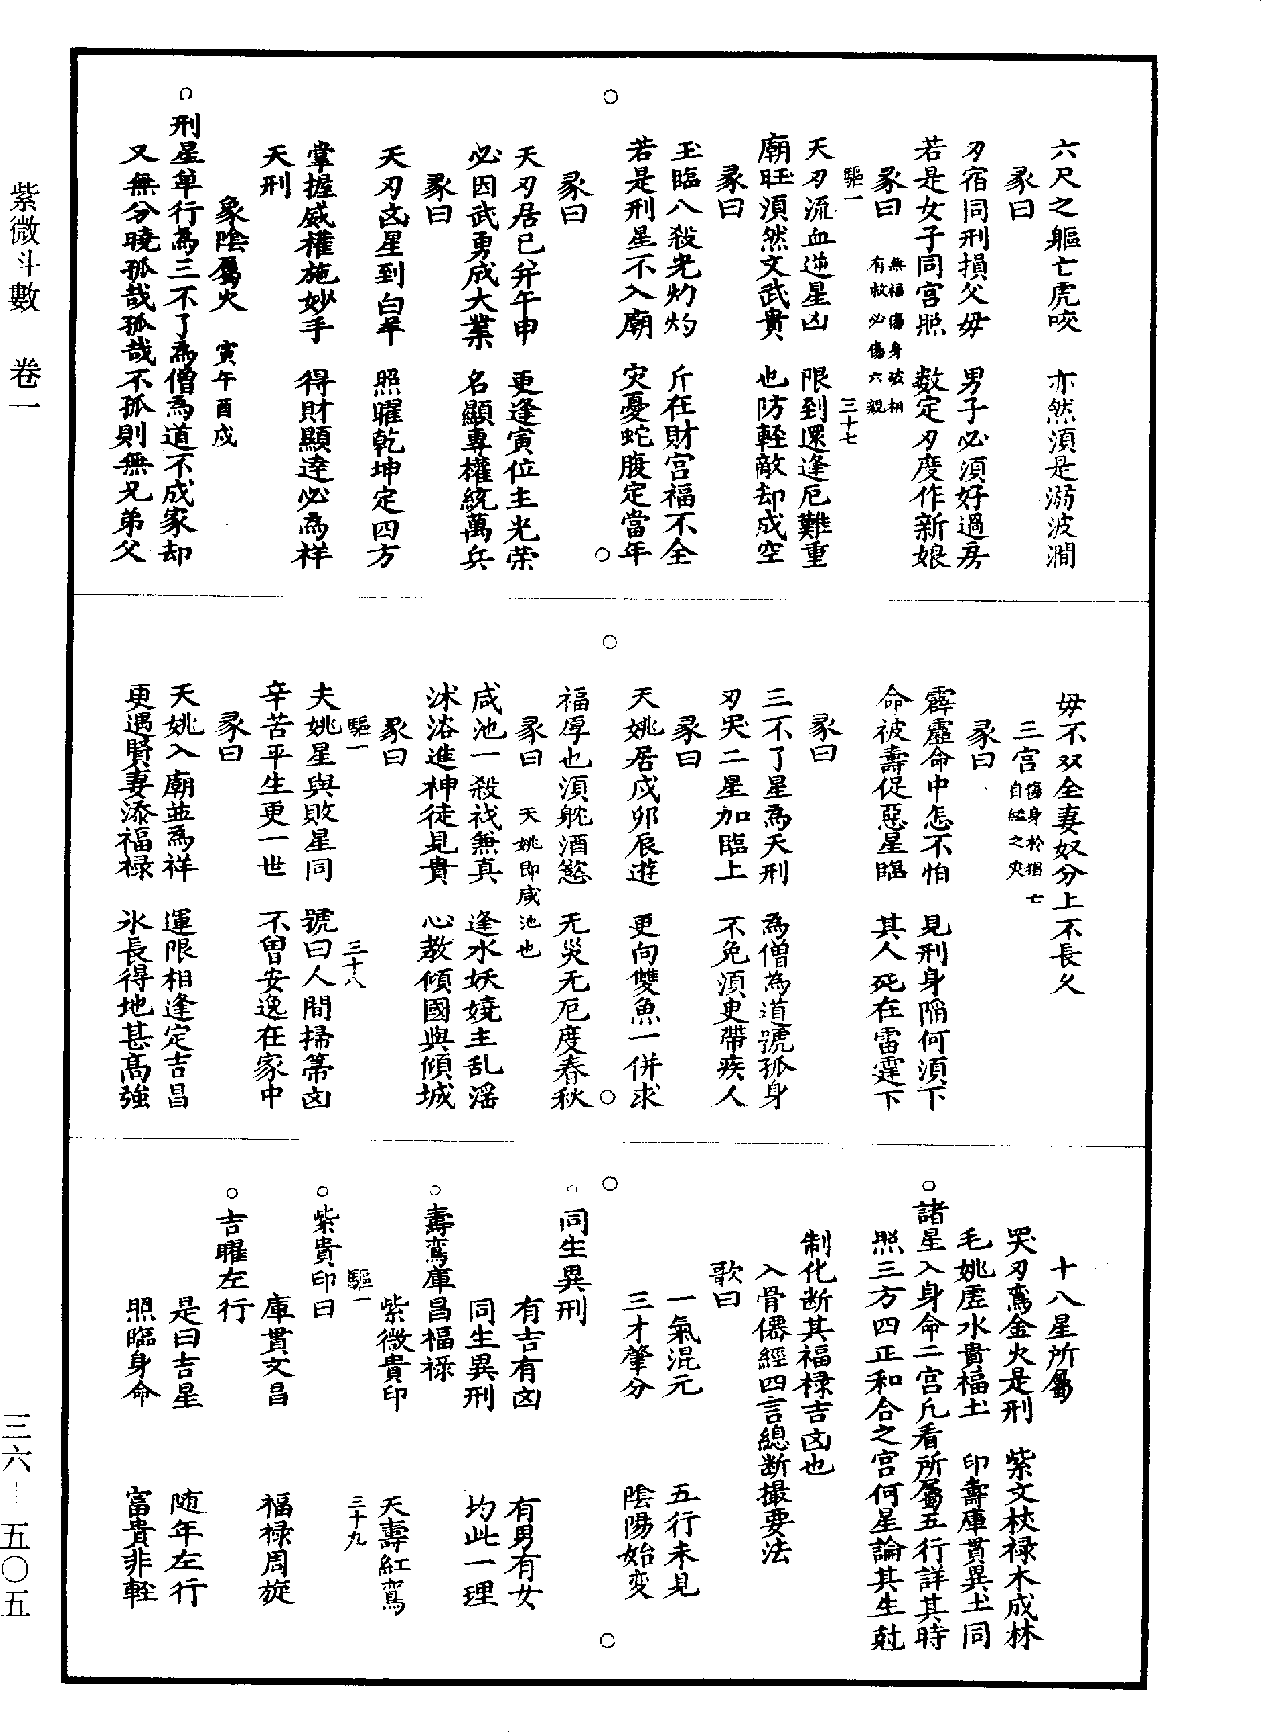 六尺之軀亡虎咬　亦然須是溺波澗
彖曰
刃宿同刑損父毋　男子必須好過房
若是女子同宮照　数定刃度作新娘
彖曰　無福傷身破相
有救必傷六親
驅一　三十七
天刃流血逆星凶　限到還逢厄難重
廟旺湏然文武貴　也防輕敵却成空
彖曰
玉臨八殺光灼灼　斤在財宮福不全
若是刑星不入廟　灾憂蛇腹定當年
彖曰
天刃居巳弁午申　更逢寅位主光荣
必因武勇成大業　名顯專權統萬兵
彖曰
天刃凶星到白羊　照曜乾坤定四方
掌握威權施妙手　得財顯達必為祥
天刑
象陰屬火　寅午酉戍
○刑星單行為三不了為僧為道不成家却
又無分曉孤哉孤哉不孤則無兄弟父
毋不双全妻奴分上不長久
三宮　傷身於獨亡
自縊之灾
彖曰
霹靂命中怎不怕　見刑身陷何湏下
命被壽促惡星臨　其人死在雷霆下
彖曰
三不了星為天刑　為僧為道號孤身
刃哭二星加臨上　不免湏更帶疾人
彖曰
天姚居戍卯辰遊　更向雙魚一併求
福厚也湏躭酒慾　无災无厄度春秋
彖曰　天姚即咸池也
咸池一殺伐無真　逢水妖嬈主乱滛
沐浴進神徒見貴　心教傾國與傾城
彖曰
驅一　三十八
夫姚星與敗星同　號曰人間掃箒凶
辛苦平生更一世　不曽安逸在家中
彖曰
天姚入廟並為祥　運限相逢定吉昌
更遇賢妻添福禄　氷長得地甚髙強
十八星所屬
哭刃鸞金火是刑　紫文杖禄木成林
毛姚虛水貴福土　印壽庫貫異土同
○諸星入身命二宮凡看所屬五行詳其時
照三方四正和合之宮何星論其生尅
制化断其福禄吉凶也
入骨僊經四言總断撮要法
歌曰
一氣混元　五行未見
三才肇分　陰陽始变
○同生異刑
有吉有凶　有男有女
同生異刑　均此一理
○壽鸞庫昌福禄
紫微貴印　天壽紅鸞
驅一　三十九
○紫貴印曰
庫貫文昌　福禄周旋
○吉曜左行
是曰吉星　随年左行
照臨身命　富貴非輕
紫微斗數　卷一
三六—五〇五